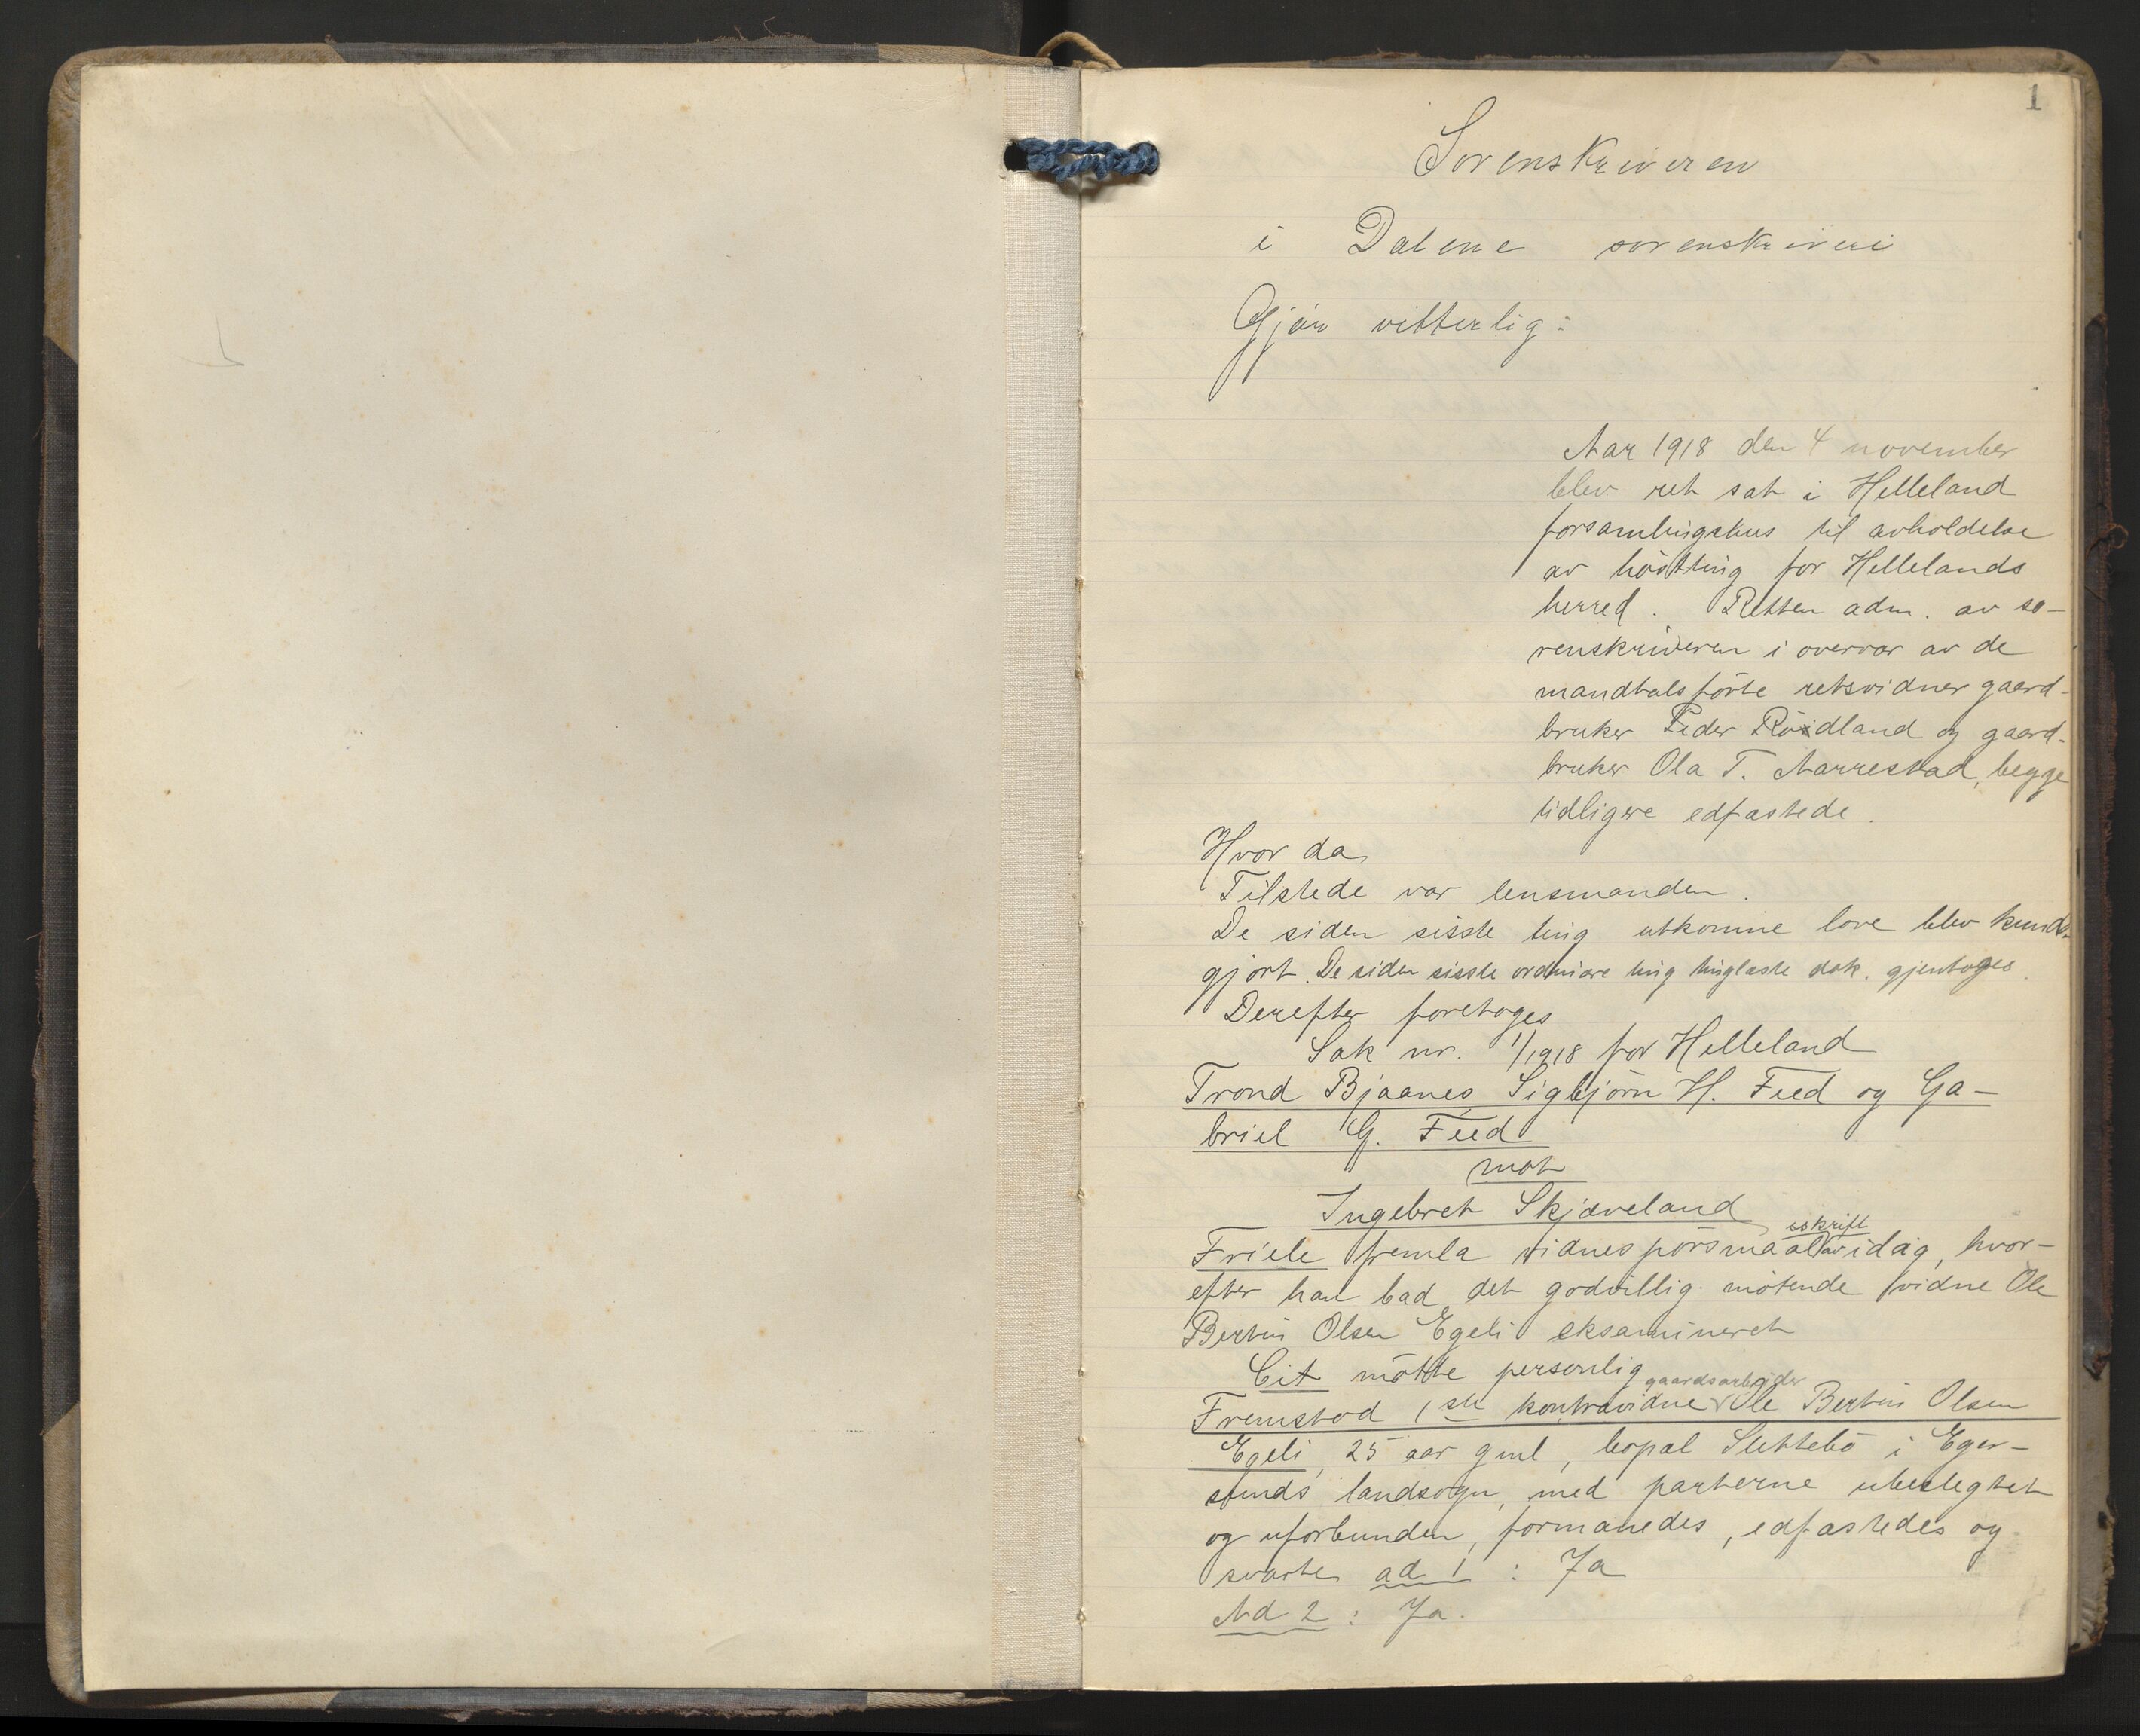 1
Sorenskriveren
i Dalene sorenskriveri
Gjör vitterlig:
Aar 1918 den 4 november
blev ret sat i Helleland
forsamlingshus til avholdelse
av höstting for Hellelands
herred. Retten adm. av so-
renskriveren i overvær av de
mandtalsförte retsvidner gaard-
bruker Peder Rödland og gaard-
bruker Ola T. Aarrestad, begge
tidligere edfæstede.
Hvor da
Tilstede var lensmanden.
De siden sisste ting utkomne love blev kund-
gjort. De siden sisste ordinære ting tinglæste dok. gjentoges.
Derefter foretoges
Sak nr. 1/1918 for Helleland
Trond Bjaanes Sigbjörn H. Feed og Ga-
briel G. Feed
mot
Ingebret Skjæveland
sskrift
Friele fremla vidnespörsmaal av idag, hvor-
efter han bad det godvillig mötende vidne Ole
Bertin Olsen Egeli eksamineret
Cit mötte personlig
gaardsarbeider
Fremstod 1ste kontravidne Ole Bertin Olsen
Egeli, 25 aar gml, bopæl Slettebö i Eger-
sunds landsogn, med parterne ubeslegtet
og uforbunden, formanedes, edfæstedes og
svarte ad 1: Ja
Ad 2: Ja.